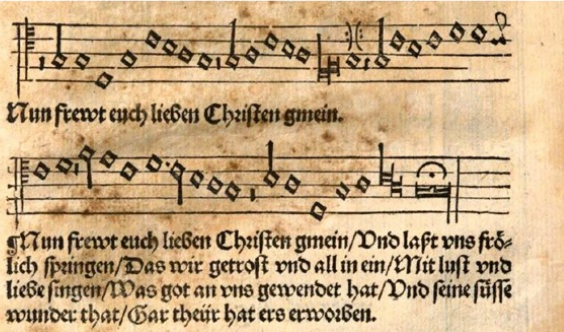 Nun frewt euch lieben Christen gmein.
¶Nun frewt euch lieben Christen gmein/Vnd laßt vns frö-
lich springen/Das wir getrost vnd all in ein/Mit lust vnd
liebe singen/Was got an vns gewendet hat/Vnd seine süsse
wunder that/Gar theür hat ers erworben.